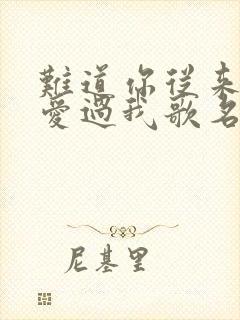 難道你從来
愛過我歌名
尼基里